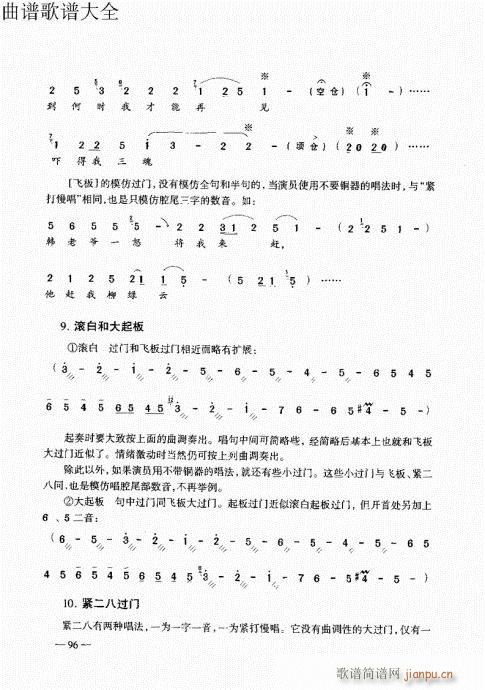 曲谱歌谱大全
2 5 3 2 2 2 1 2 5 1 - (空仓) (1 -) ……
到 何 时 我 才 能 再 见
1 2 2 5 1 3 - 2 2 - - (顷仓) (2 0 2 0) ……
吓 得 我 三 魂
[飞板] 的模仿过门,没有模仿全句和半句的,当演员使用不要铜器的唱法时,与“紧
打慢唱”相同,也是只模仿腔尾三字的数音。如:
5 6 5 5 5 - 2 2 3 1 2 5 1 - (2 2 5 1 -)
韩 老 爷 一 怒 得 我 来 赶,
2 1 2 5 2 1 1 5 - (5 2 1 5 -) ……
他 赶 我 柳 绿 云
9. 滚白和大起板
①滚白 过门和飞板过门相近而略有扩展:
(3 - 2 - 1 - 5 - 2 - 5 - 4 - 5 - 6 5 4 5
6 5 4 5 6 5 4 5 3 - 2 - 1 - 7 6 - 6 5 #4 - 5 -)
起奏时要大致按上面的曲调奏出。唱句中间可简略些,经简略后基本上也就和飞板
大过门近似了。情绪激动时当然仍可按上列曲调奏出。
除此以外,如果演员用不带铜器的唱法,就还有些小过门。这些小过门与飞板、紧二
八同,也是模仿唱腔尾部数音,不再举例。
②大起板 句中过门同飞板大过门。起板过门近似滚白起板过门,但开首处另加上
6 、5 二音:
(6 - 5 - 3 - 2 - 1 - 2 - 6 - 5 - 4 - 5 - 6 5
4 5 6 5 4 5 6 5 4 5 3 - 2 - 1 - 7 6 - 5 #4 - 5 -)
10. 紧二八过门
紧二八有两种唱法,一为一字一音,一为紧打慢唱。它没有曲调性的大过门,仅有一
— 96 —
歌谱简谱网
jianpu.cn